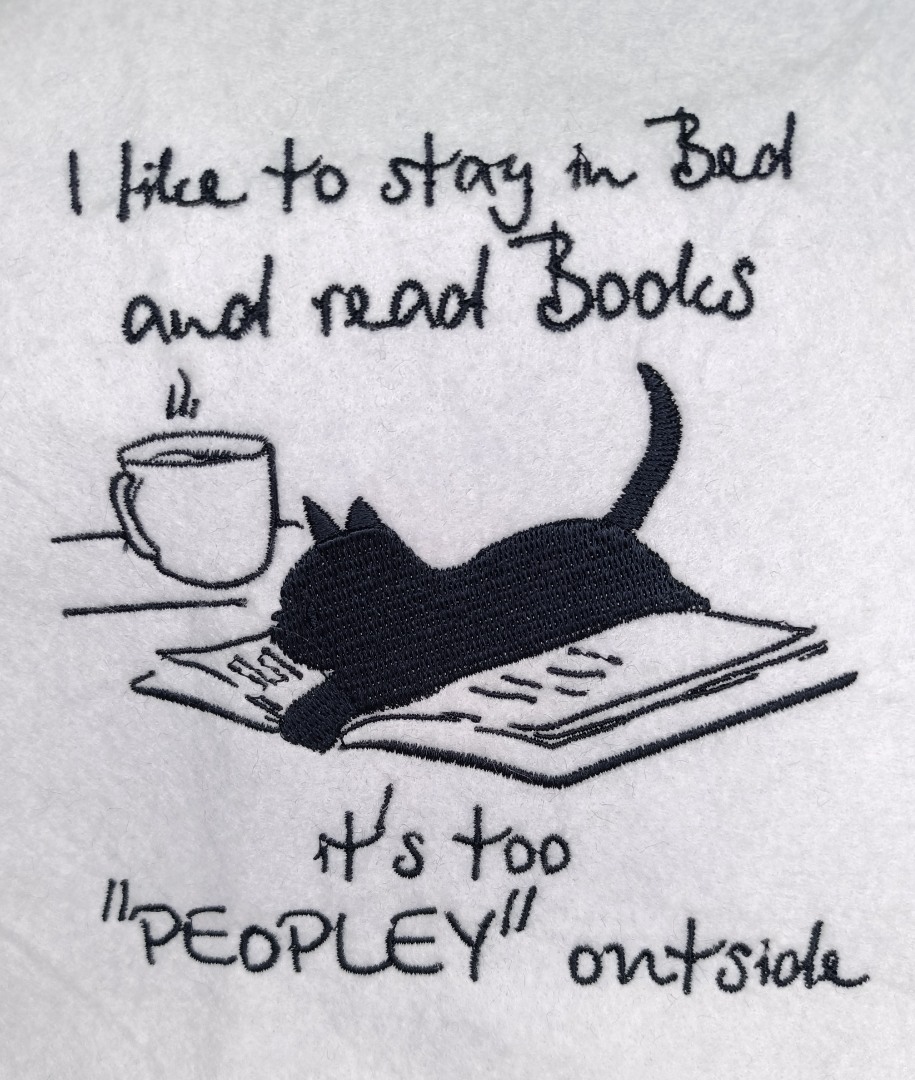 I like to stay in Bed
and read Books
it's too
"PEOPLEY" outside